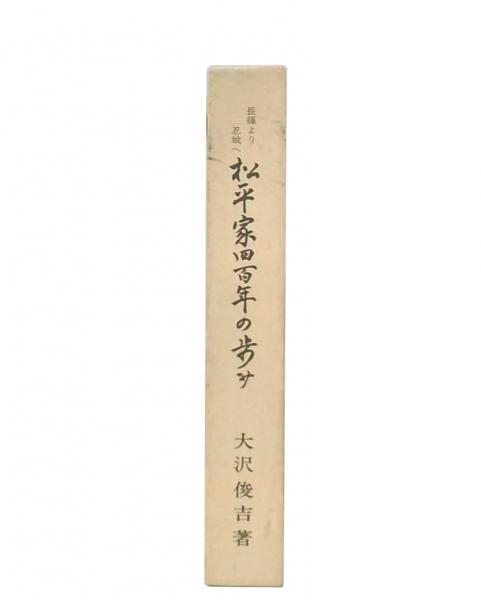 長篠より
忍城へ
松平家四百年の歩み
大沢俊吉著